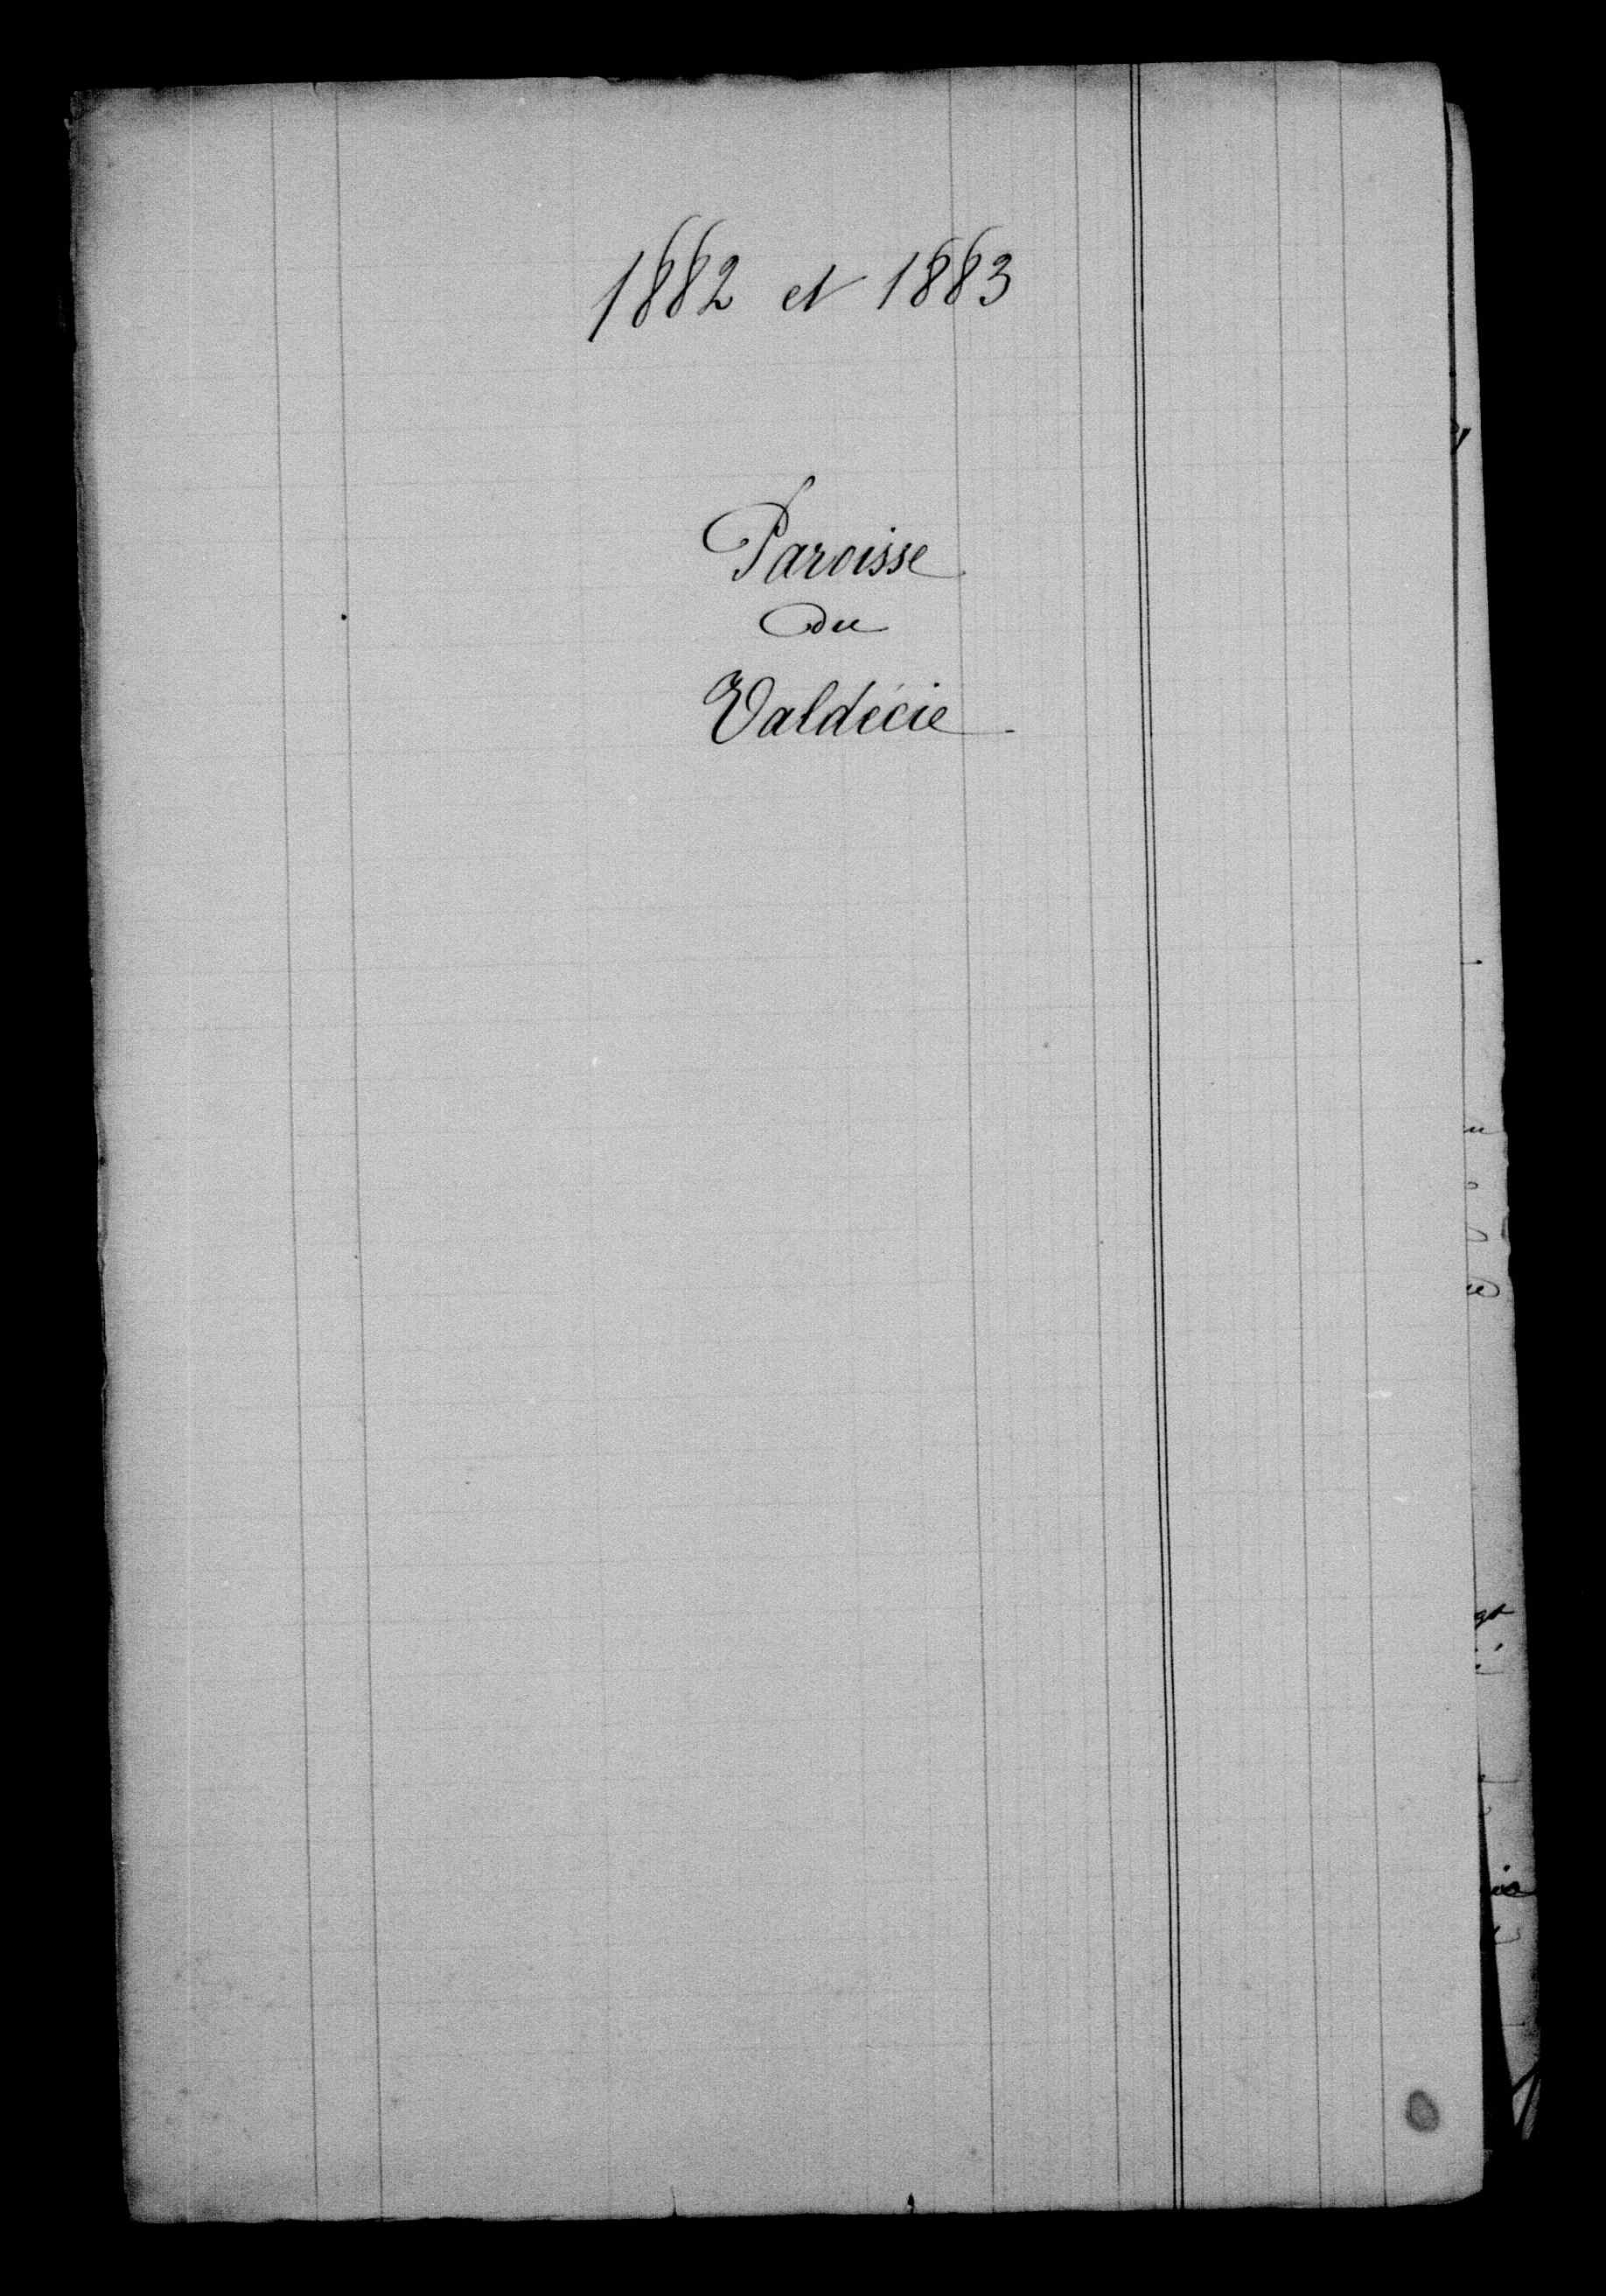 1882 et 1883
Paroisse
du
Valdécie